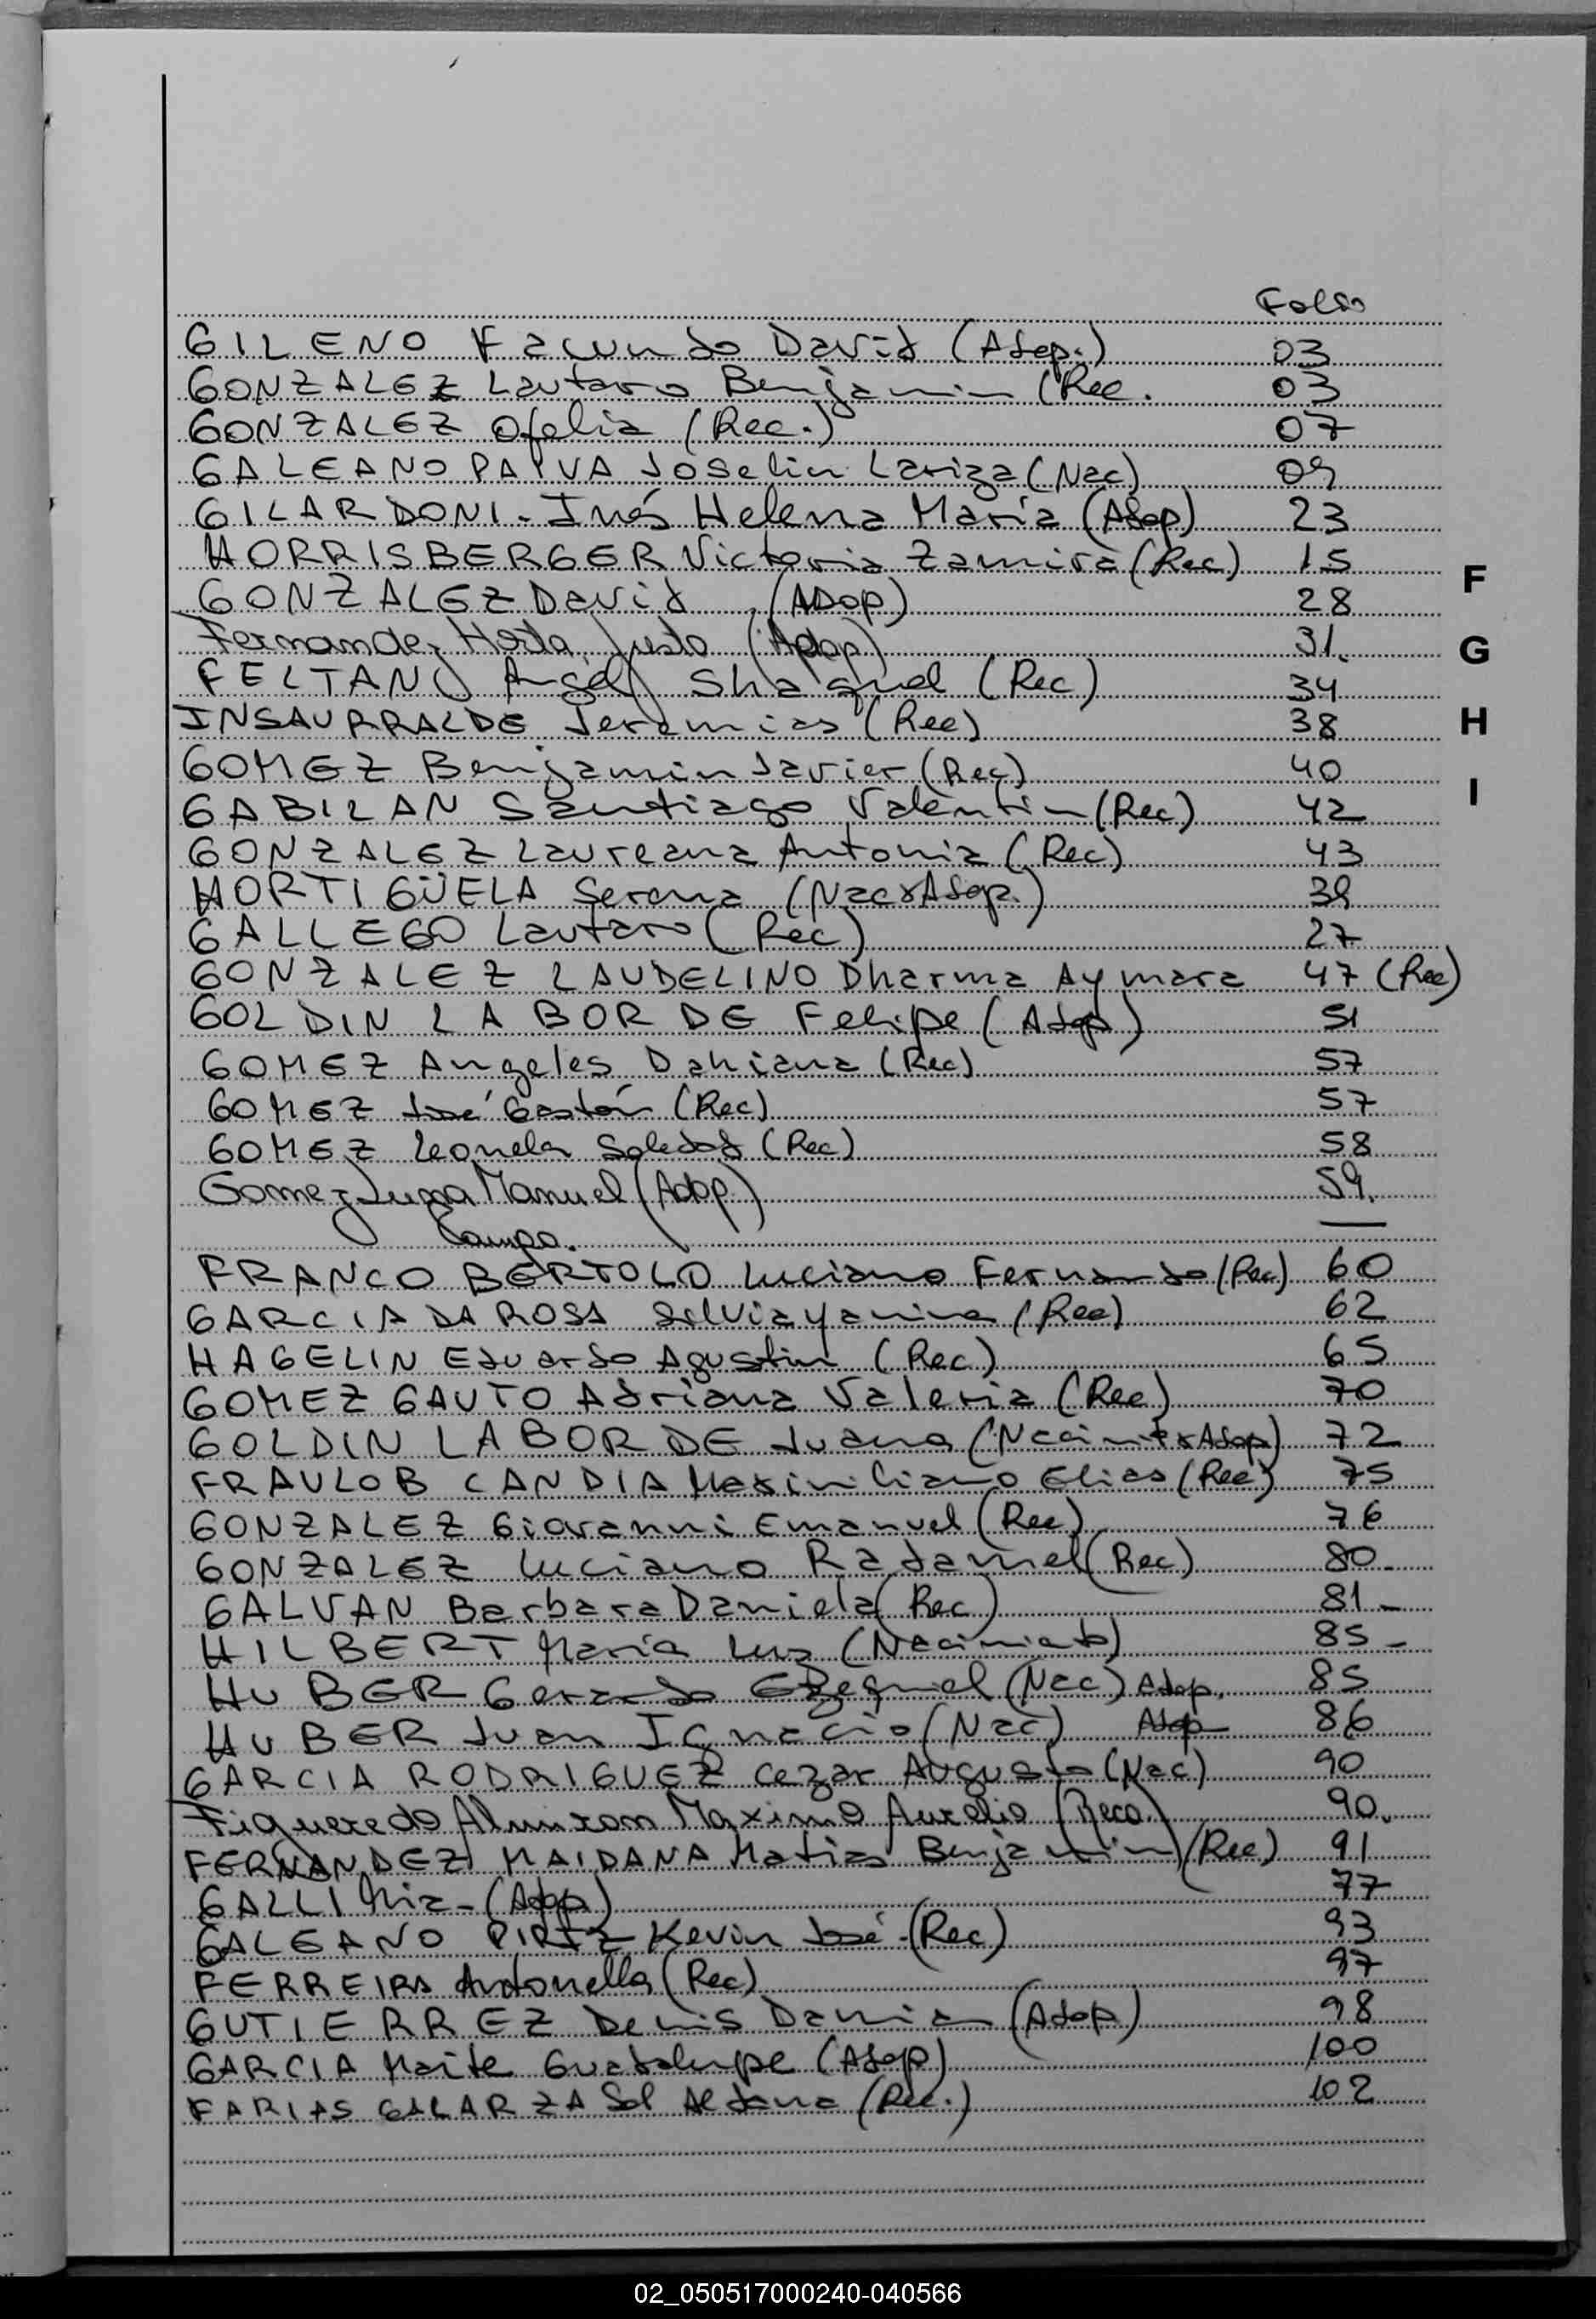 Folio
GILENO Facundo David (Adop.) 03
GONZALEZ Lautaro Benjamin (Rec. 03
GONZALEZ Ofelia (Rec.) 07
GALEANO PAIVA Joselin Lariza (Nac) 09
GILARDONI - Inés Helena María (Adop) 23
HORRISBERGER Victoria Zamira (Rec) 15
GONZALEZ David (ADOP) 28
Fernandez Justo (Adop) 31.
FELTAN Angel (Rec) 34
INSAURRALDE Jeremias (Rec) 38
GOMEZ Benjamin Javier (Rec) 40
GABILAN Santiago Valentin (Rec) 42
GONZALEZ Laureana Antonia (Rec) 43
HORTIGÜELA Serena (NacxAdop.) 39
GALLEGO Lautaro (Rec) 27
GONZALEZ LAUDELINO Dharma Aymara 47 (Rec)
GOLDIN LABORDE Felipe (Adop) 51
GOMEZ Angeles Dahiana (Rec) 57
GOMEZ José Gastón (Rec) 57
GOMEZ Leonela Soledad (Rec) 58
Gomez Manuel (Adop) 59.
FRANCO BERTOLO Luciano Fernando (Rec) 60
GARCIA DA ROSA Silvia Yanina (Rec) 62
HAGELIN Eduardo Agustin (Rec) 65
GOMEZ GAUTO Adriana Valeria (Rec) 70
GOLDIN LABORDE Juana (NacimitxAdop) 72
FRAULOB CANDIA Maximiliano Elias (Rec) 75
GONZALEZ Giovanni Emanuel (Rec) 76
GONZALEZ Luciano Radamel (Rec) 80
GALVAN Barbara Daniela (Rec) 81
HILBERT María Luz (Nacimiento) 85
HUBER Gerardo Ezequiel (Nac) Adop. 85
HUBER Juan Ignacio (Nac) Adop 86
GARCIA RODRIGUEZ Cezar Augusto (Nac) 90
Figueredo Almiron Maximo Aurelio (Reco.) 90.
FERNANDEZ MAIDANA Matias Benjamin (Rec) 91
GALLI Mia - (Adop) 77
GALEANO PIRIZ Kevin José - (Rec) 93
FERREIRA Antonella (Rec) 97
GUTIERREZ Denis Damian (Adop) 98
GARCIA Maite Guadalupe (Adop) 100
FARIAS GALARZA Sol Aldana (Rec.) 102
F
G
H
I
02_050517000240-040566